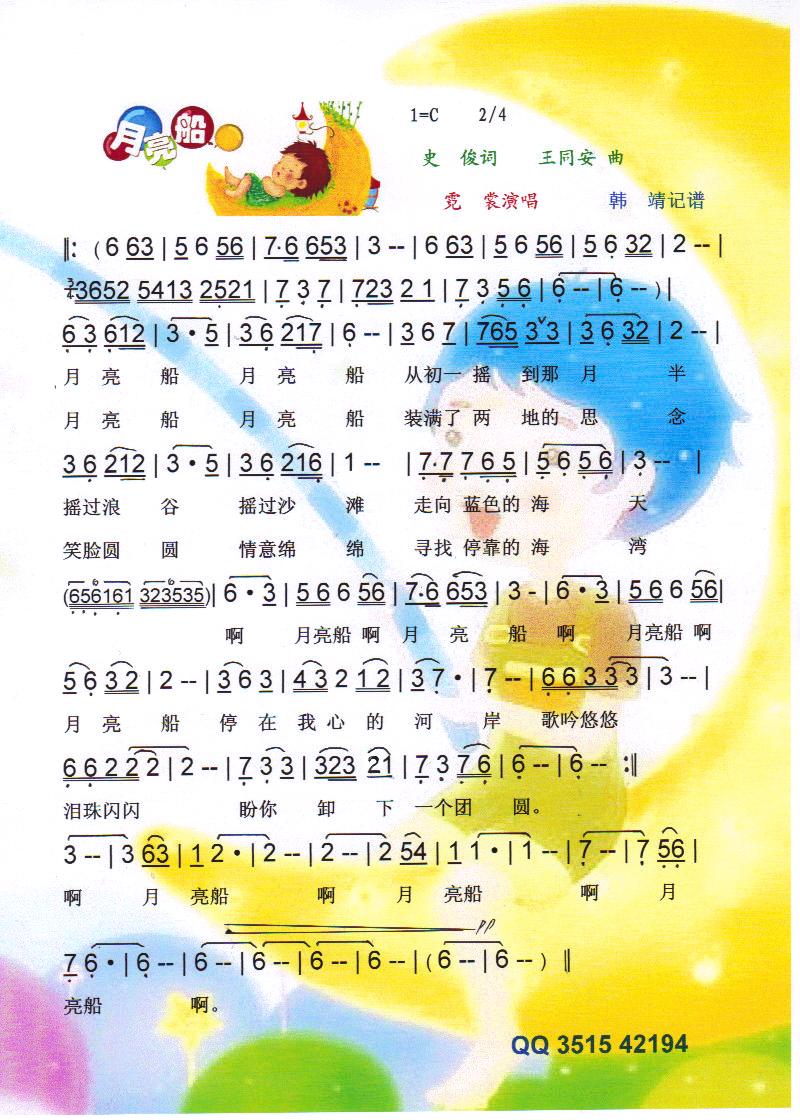 月亮船
1=C 2/4
史 俊词 王同安 曲
霓 裳演唱 韩 靖记谱
‖: ( 6 63 | 5 6 56 | 7·6 653 | 3 -- | 6 63 | 5 6 56 | 5 6 32 | 2 -- |
3/4 3652 5413 2521 | 7 3 7 | 723 2 1 | 7 3 5 6 | 6 -- | 6 -- ) |
6 3 612 | 3 · 5 | 3 6 217 | 6 -- | 3 6 7 | 765 3 3 | 3 6 32 | 2 -- |
月 亮 船 月 亮 船 从初一 摇 到那 月 半
月 亮 船 月 亮 船 装满了 两 地的 思 念
3 6 212 | 3 · 5 | 3 6 216 | 1 -- | 7·7 7 6 5 | 5 6 5 6 | 3 -- |
摇过浪 谷 摇过沙 滩 走向 蓝色的 海 天
笑脸圆 圆 情意绵 绵 寻找 停靠的 海 湾
(656161 323535) | 6 · 3 | 5 6 6 56 | 7·6 653 | 3 - | 6 · 3 | 5 6 6 56 |
啊 月亮船 啊 月 亮 船 啊 月亮船 啊
5 6 32 | 2 -- | 3 6 3 | 4 3 2 1 2 | 3 7 · | 7 -- | 6 6 3 3 3 | 3 -- |
月 亮 船 停 在 我 心 的 河 岸 歌吟悠悠
6 6 2 2 2 | 2 -- | 7 3 3 | 323 21 | 7 3 7 6 | 6 -- | 6 -- :‖
泪珠闪闪 盼你 卸 下 一个团 圆。
3 -- | 3 63 | 1 2 · | 2 -- | 2 -- | 2 54 | 1 1 · | 1 -- | 7 -- | 7 56 |
啊 月 亮船 啊 月 亮船 啊 月
pp
7 6 · | 6 -- | 6 -- | 6 -- | 6 -- | 6 -- | ( 6 -- | 6 -- ) ‖
亮船 啊。
QQ 3515 42194